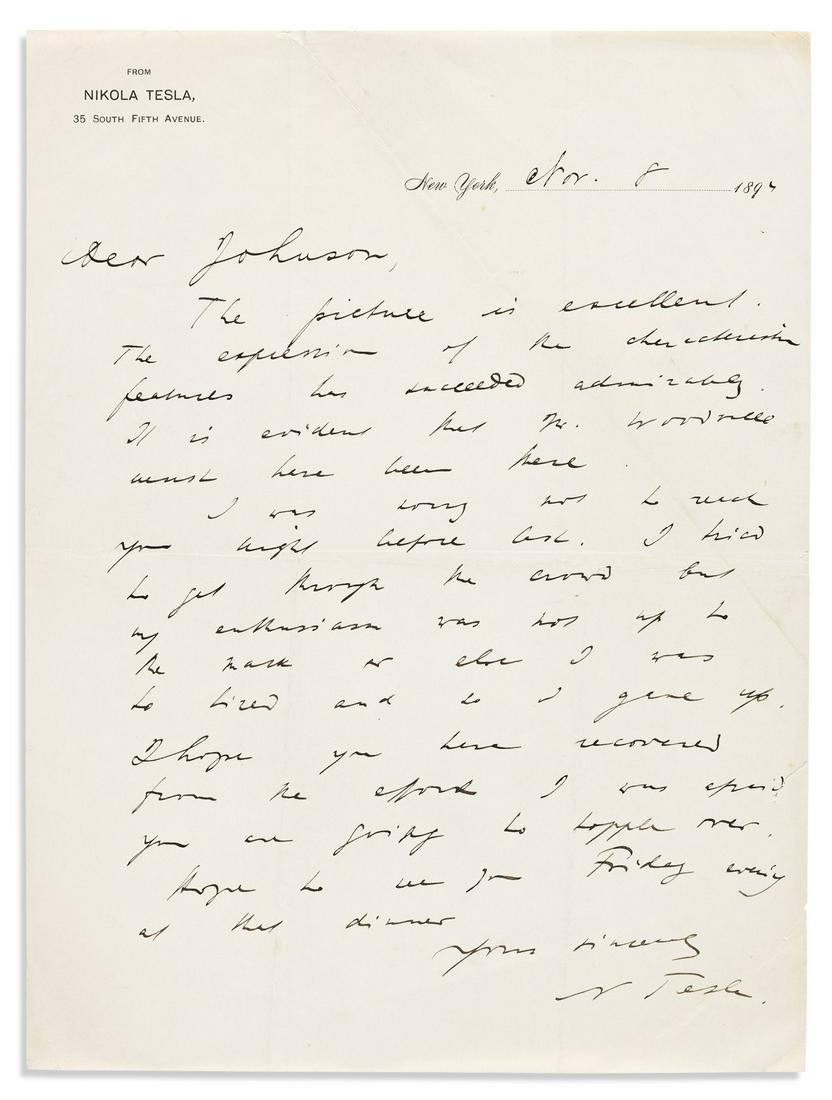 FROM
NIKOLA TESLA,
35 SOUTH FIFTH AVENUE.
New York, Nov. 8 1894
Dear Johnson,
The picture is excellent.
The expression of the characteristic
features has succeeded admirably.
It is evident that Mr. Woodville
must have been there.
I was sorry not to reach
you night before last. I tried
to get through the crowd but
my enthusiasm was not up to
the mark or else I was
to tired and so I gave up.
I hope you have recovered
from the effort I was afraid
you are going to topple over.
Hope to see you Friday evening
at that dinner
Yours sincerely
N Tesla.